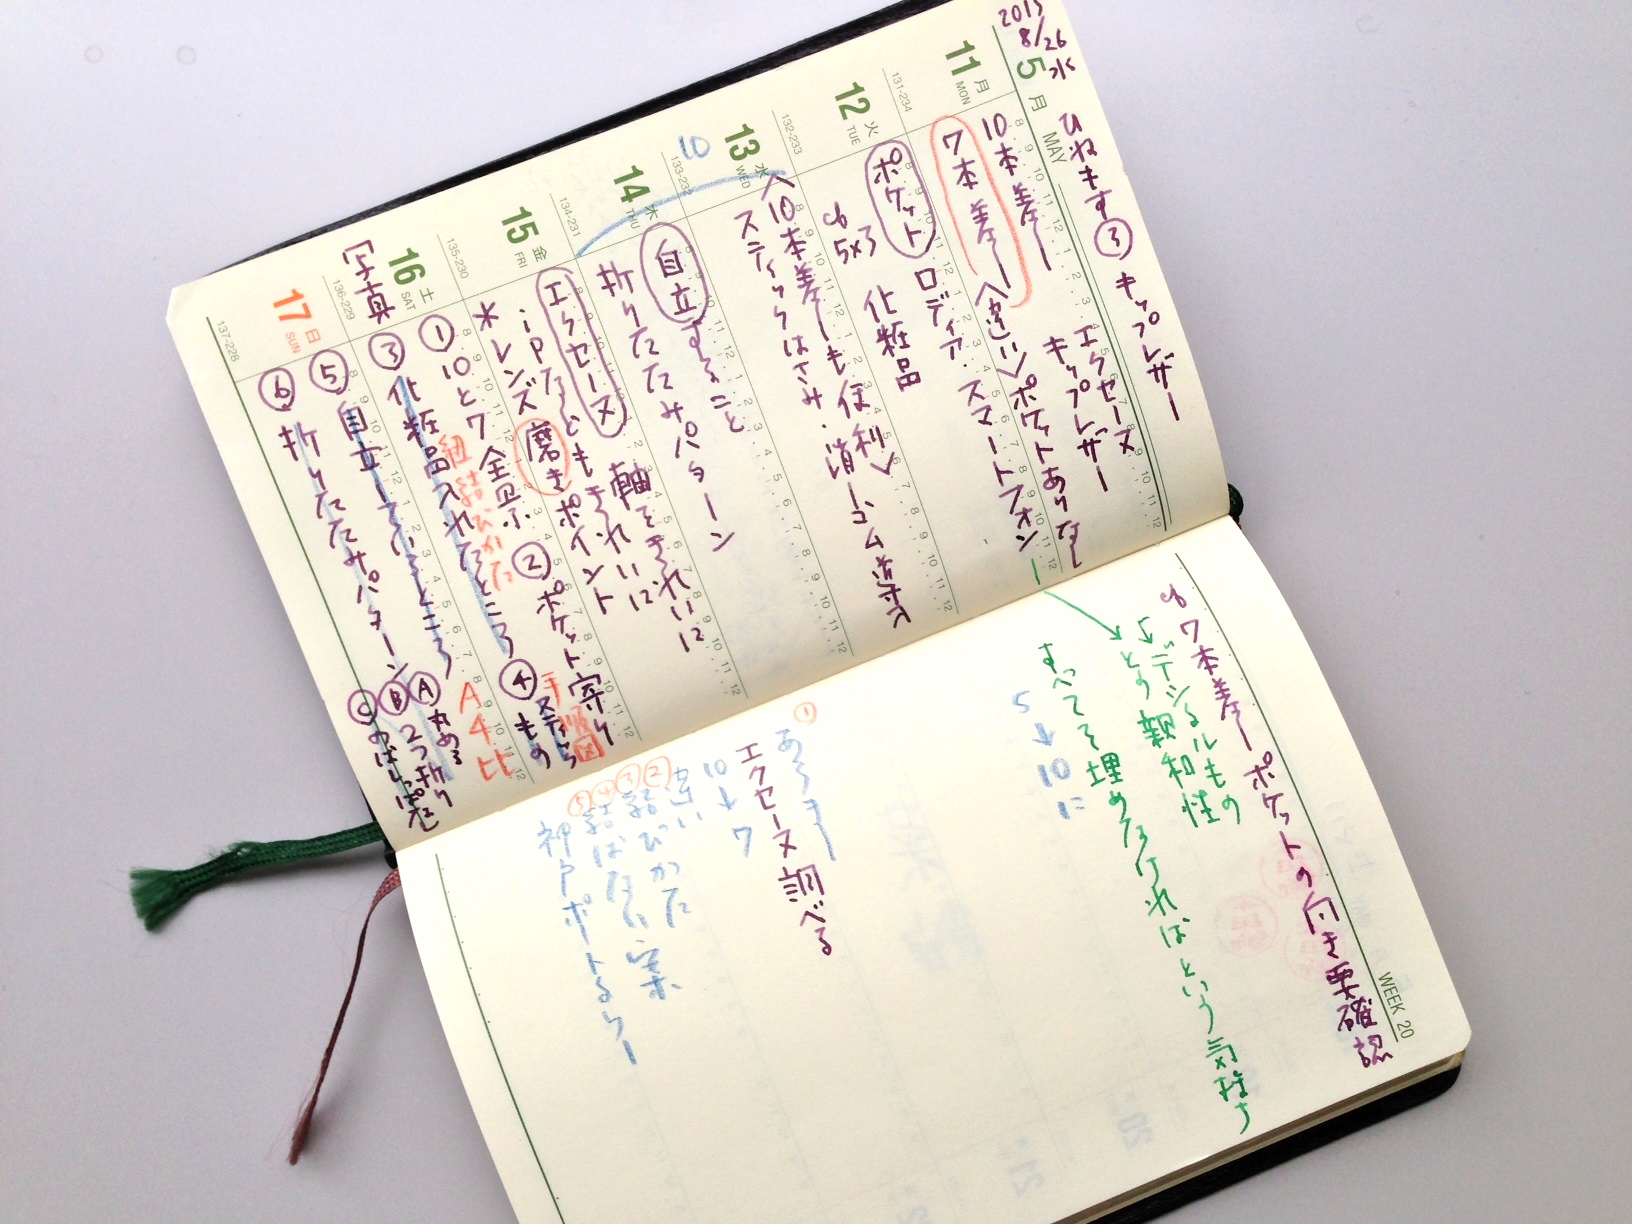 2015
8/26
水
ひねもす③ キップレザー
5月 MAY
11 月 MON
131-234
12 火 TUE
132-233
13 水 WED
133-232
14 木 THU
134-231
15 金 FRI
135-230
16 土 SAT
136-229
17 日 SUN
137-228
10本差し エクセーヌ
キップレザー
7本差し〈違い〉ポケットありなし
ポケット ロディア・スマートフォン
cf 5×3 化粧品
〈10本差しも便利〉
スティックはさみ・消しゴム
10
自立すること
折りたたみパターン
エクセーヌ 軸をきれいに
iPなどもきれいに
＊レンズ磨きポイント
[写真
①10と7全景 ②ポケット寄り
③化粧品入れたところ ④もの
紐結びかた
手順図
⑤自立しているところ
A4比
⑥折りたたみパターン
Ⓐ丸める
Ⓑ2つ折り
Ⓒ
WEEK 20
cf 7本差し ポケットの向き要確認
デジタルもの
との親和性
すべてを埋めなければという気持ち
5→10に
①あらまし
エクセーヌ調べる
10→7
違い
②結びかた
③結ばない案
④
⑤神戸ポートタワー